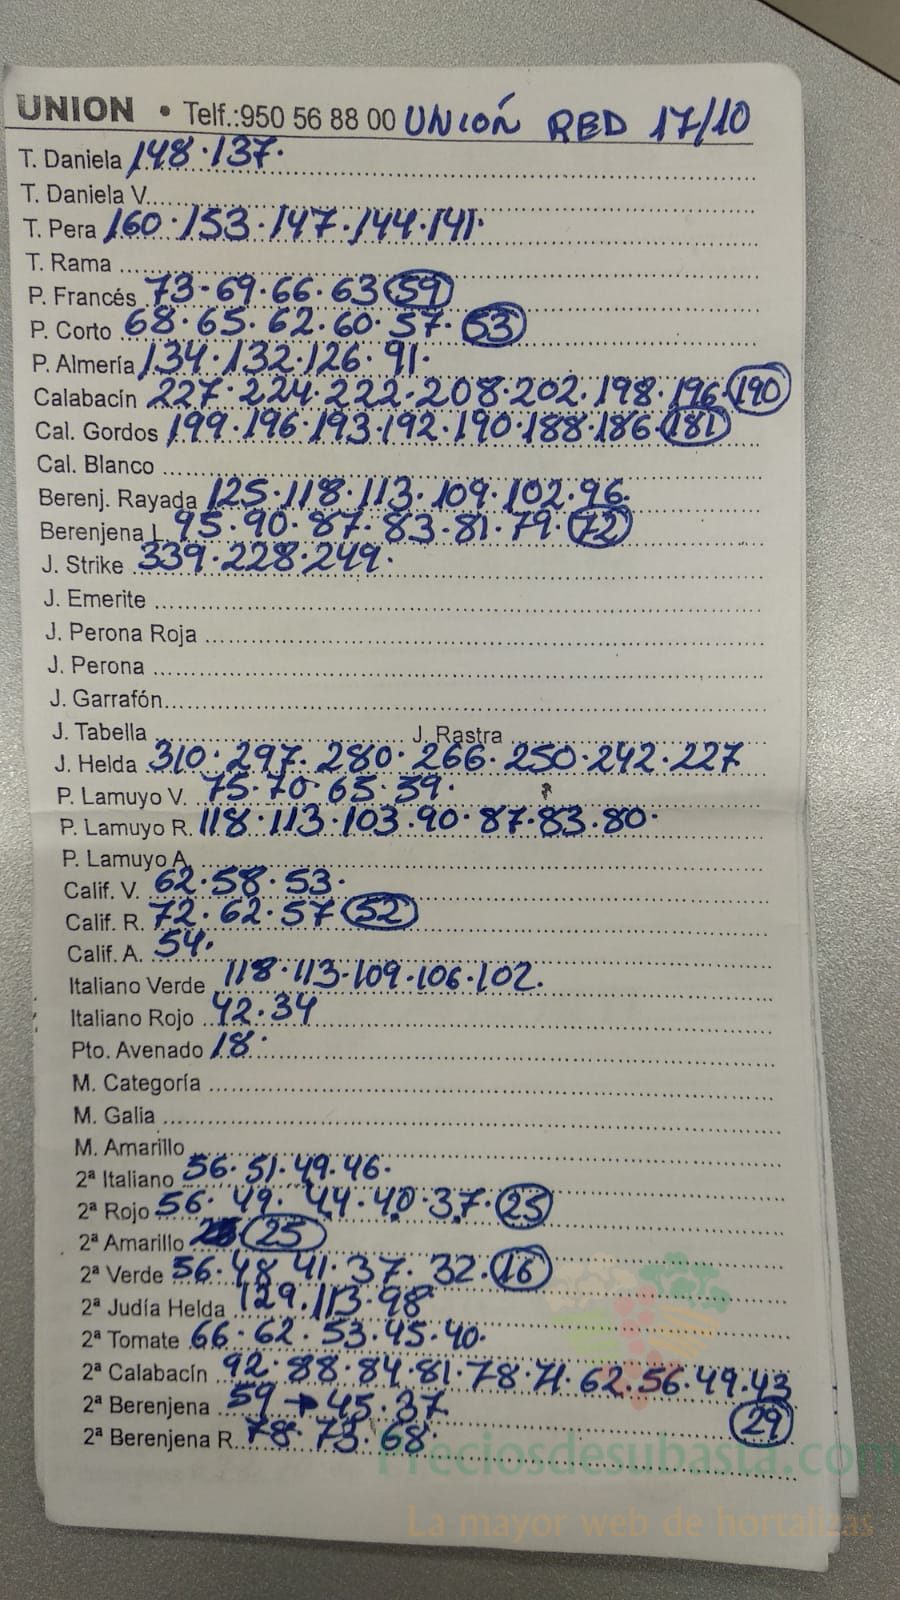 UNION • Telf.:950 56 88 00 UNIÓN RED 17/10
T. Daniela 148·137·
T. Daniela V.
T. Pera 160·153·147·144·141·
T. Rama
P. Francés 73-69·66·63 59
P. Corto 68·65·62·60·57·53
P. Almería 134·132·126·91·
Calabacín 227·224·222·208·202·198·196·190
Cal. Gordos 199·196·193·192·190·188·186·181
Cal. Blanco
Berenj. Rayada 125·118·113·109·102·96·
Berenjena L. 95·90·87·83·81·79·72
J. Strike 339·228·249·
J. Emerite
J. Perona Roja
J. Perona
J. Garrafón
J. Tabella J. Rastra
J. Helda 310·297·280·266·250·242·227
P. Lamuyo V. 75·70·65·39·
P. Lamuyo R. 118·113·103·90·87·83·80·
P. Lamuyo A.
Calif. V. 62·58·53·
Calif. R. 72·62·57 52
Calif. A. 54·
Italiano Verde 118·113·109·106·102.
Italiano Rojo 42·34
Pto. Avenado 18·
M. Categoría
M. Galia
M. Amarillo
2ª Italiano 56·51·49·46·
2ª Rojo 56·49·44·40·37·25
2ª Amarillo 25
2ª Verde 56·48 41·37·32·16
2ª Judía Helda 129·113·98
2ª Tomate 66·62·53·45·40·
2ª Calabacín 92·88·84·81·78·71·62·56·49·43
2ª Berenjena 59 → 45·37 29
2ª Berenjena R. 78·73·68·
Preciosdesubasta.com
La mayor web de hortalizas